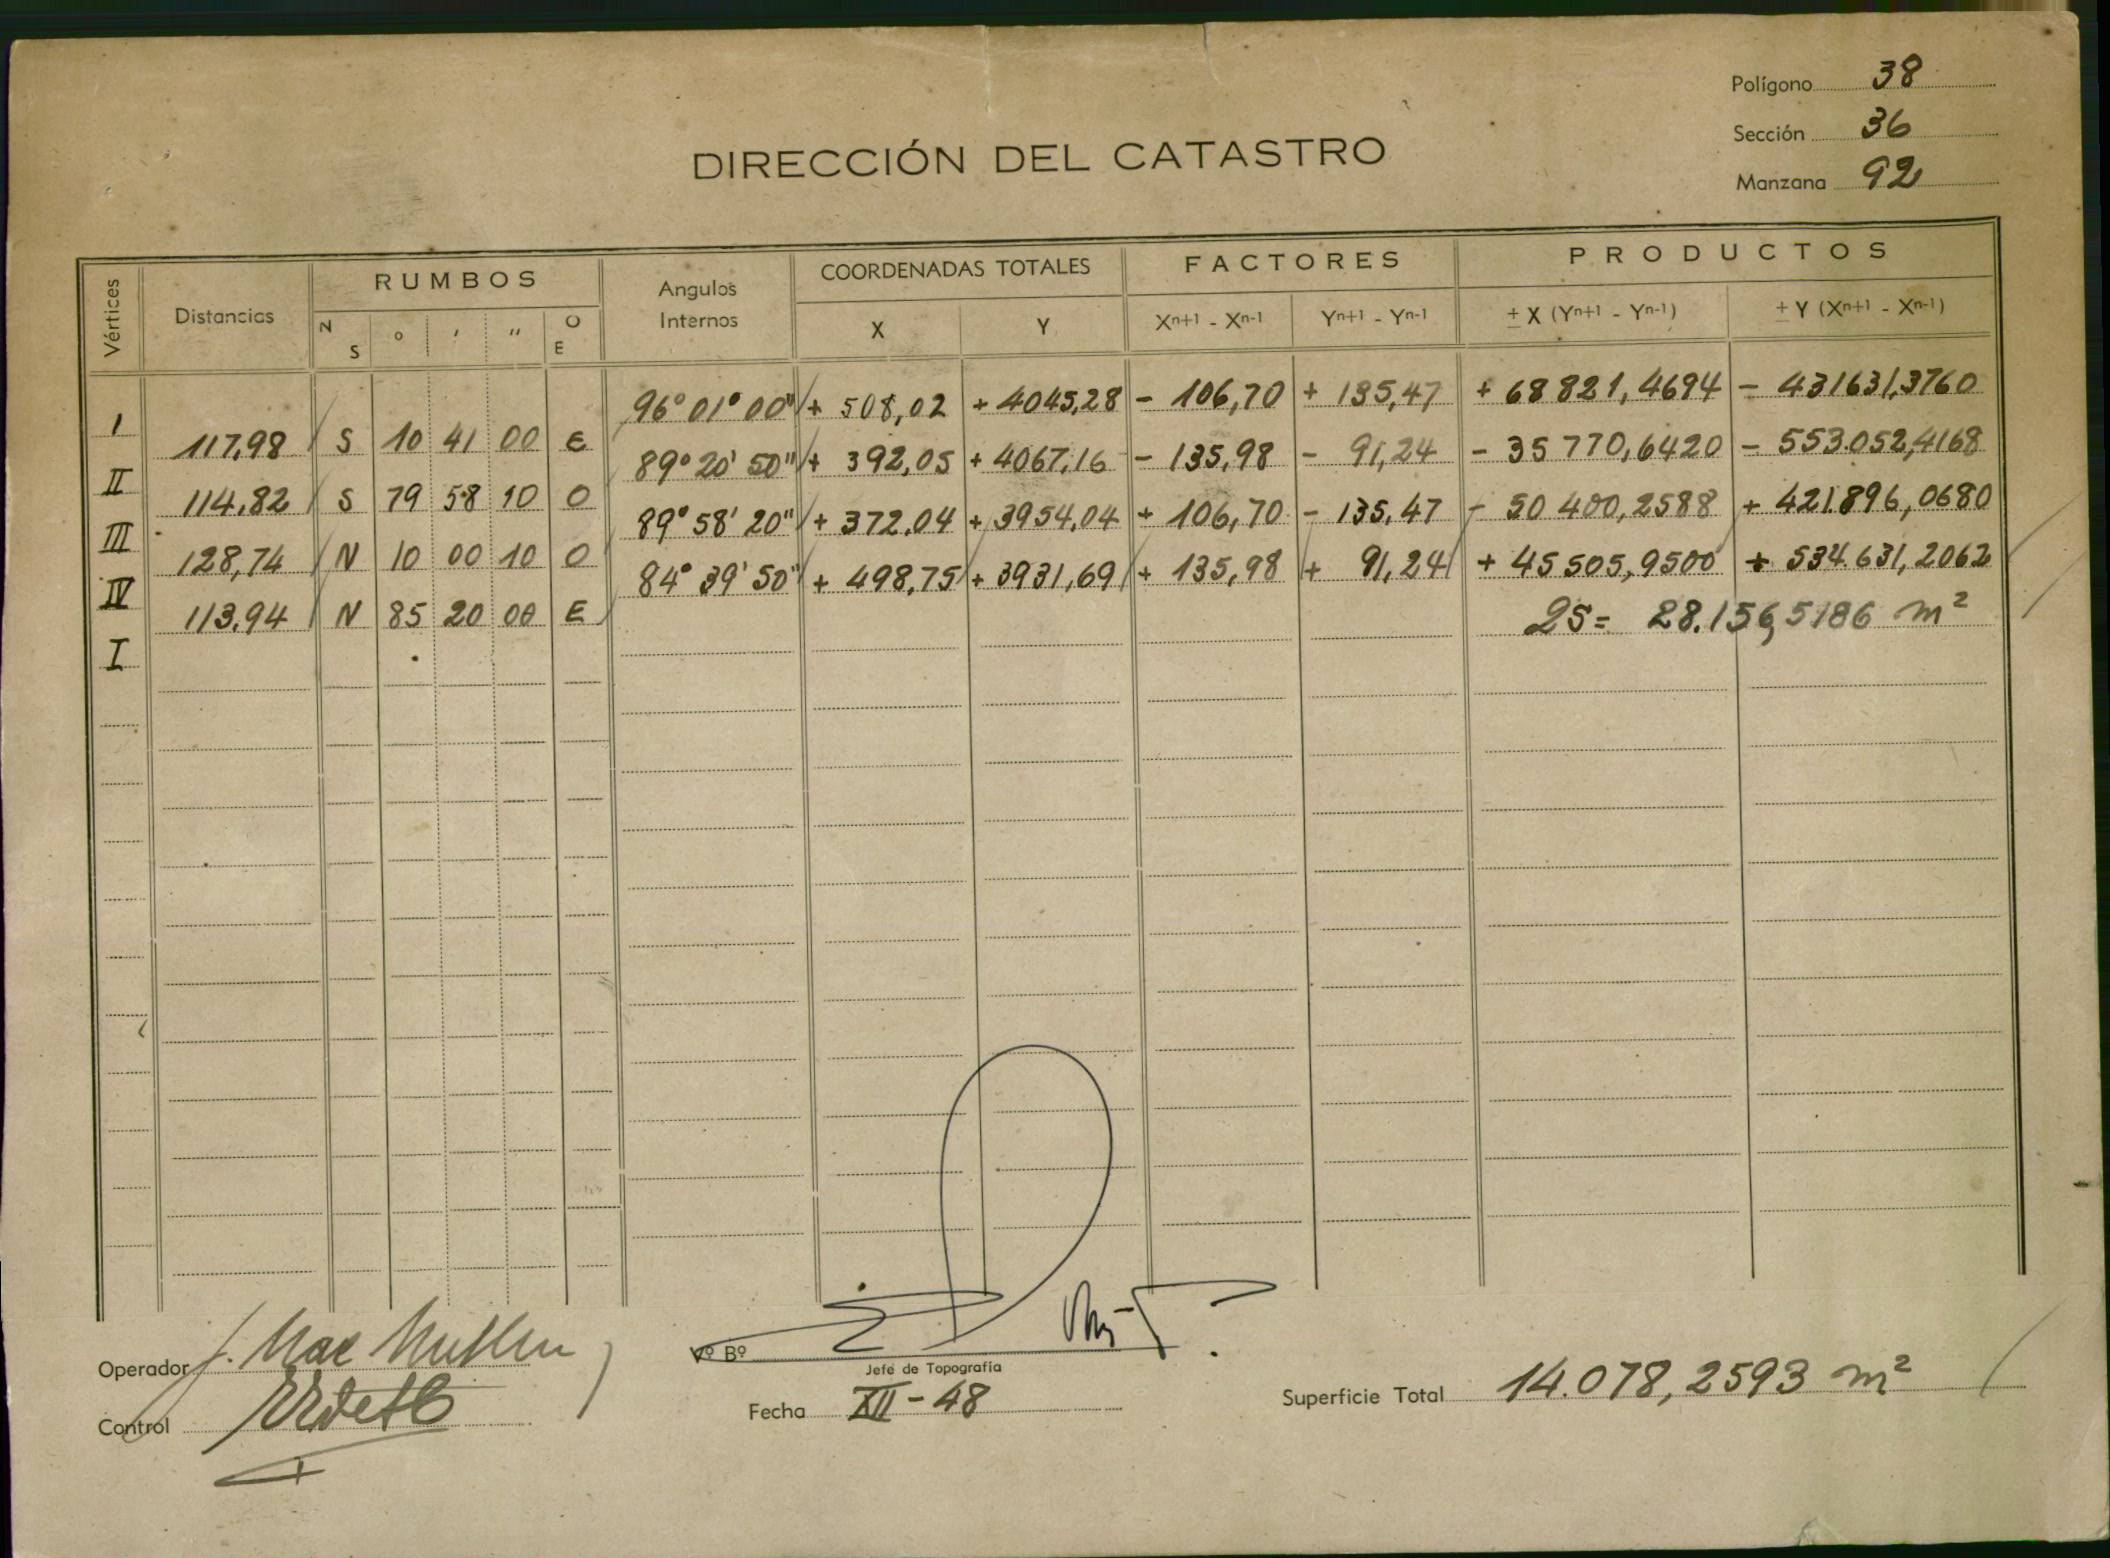 Polígono 38
Sección 36
Manzana 92
DIRECCIÓN DEL CATASTRO
Vértices Distancias RUMBOS Angulos Internos COORDENADAS TOTALES FACTORES PRODUCTOS
N S ° ' " O E X Y Xn+1 - Xn-1 Yn+1 - Yn-1 ± X (Yn+1 - Yn-1) ± Y (Xn+1 - Xn-1)
I 96° 01° 00" + 508,02 + 4045,28 - 106,70 + 135,47 + 68 821,4694 - 431631,3760
117,98 S 10 41 00 E
II 89° 20' 50" + 392,05 + 4067,16 - 135,98 - 91,24 - 35 770,6420 - 553.052,4168
114,82 S 79 58 10 O
III 89° 58' 20" + 372,04 + 3954,04 + 106,70 - 135,47 - 50 400,2588 + 421.896,0680
128,74 N 10 00 10 O
IV 84° 39' 50" + 498,75 + 3931,69 + 135,98 + 91,24 + 45 505,9500 + 534.631,2062
113,94 N 85 20 00 E
2S = 28.156,5186 m²
I
Operador J. Mac Mullen
Vº Bº
Jefe de Topografía
Control
Fecha XII - 48
Superficie Total 14.078,2593 m²